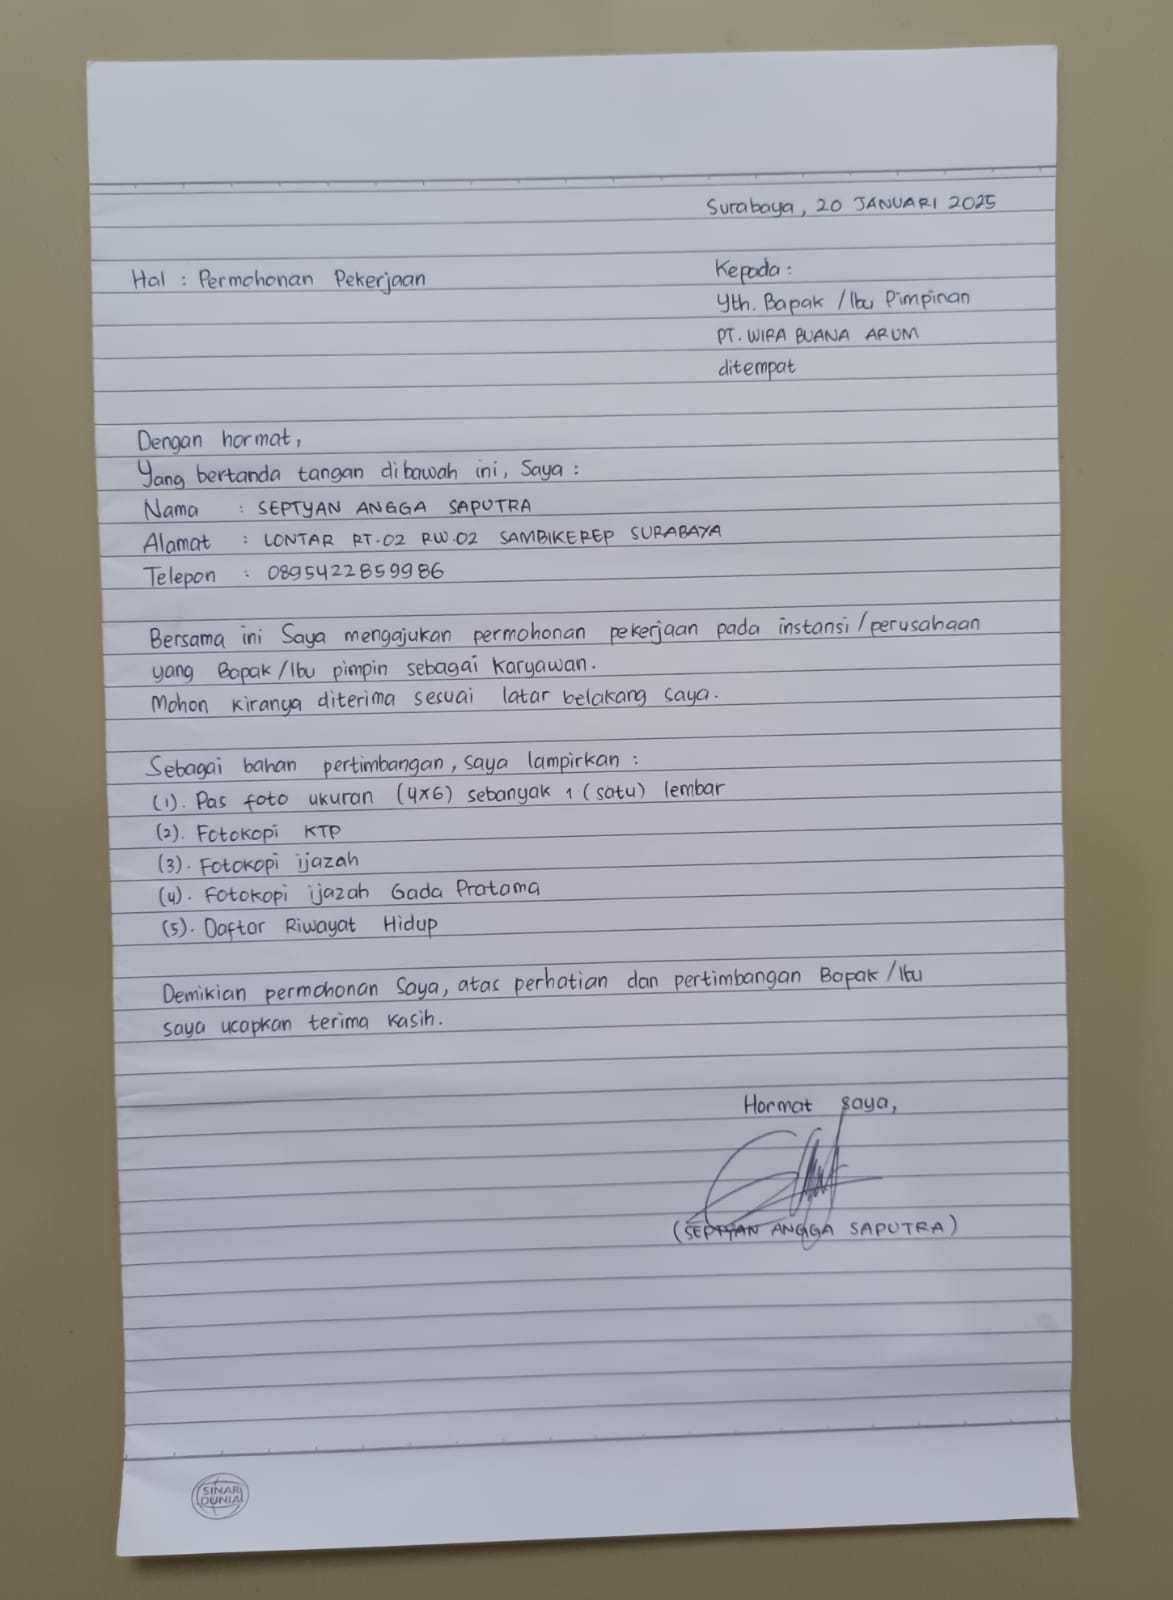 Surabaya, 20 JANUARI 2025
Hal : Permohonan Pekerjaan
Kepada :
Yth. Bapak / Ibu Pimpinan
PT. WIRA BUANA ARUM
ditempat
Dengan hormat,
Yang bertanda tangan dibawah ini, Saya :
Nama : SEPTYAN ANGGA SAPUTRA
Alamat : LONTAR RT.02 RW.02 SAMBIKEREP SURABAYA
Telepon : 0895422859986
Bersama ini Saya mengajukan permohonan pekerjaan pada instansi/perusahaan
yang Bapak/Ibu pimpin sebagai Karyawan.
Mohon kiranya diterima sesuai latar belakang saya.
Sebagai bahan pertimbangan, saya lampirkan :
(1). Pas foto ukuran (4x6) sebanyak 1 (satu) lembar
(2). Fotokopi KTP
(3). Fotokopi ijazah
(4). Fotokopi ijazah Gada Pratama
(5). Daftar Riwayat Hidup
Demikian permohonan Saya, atas perhatian dan pertimbangan Bapak/Ibu
saya ucapkan terima kasih.
Hormat saya,
(SEPTYAN ANGGA SAPUTRA)
SINAR
DUNIA